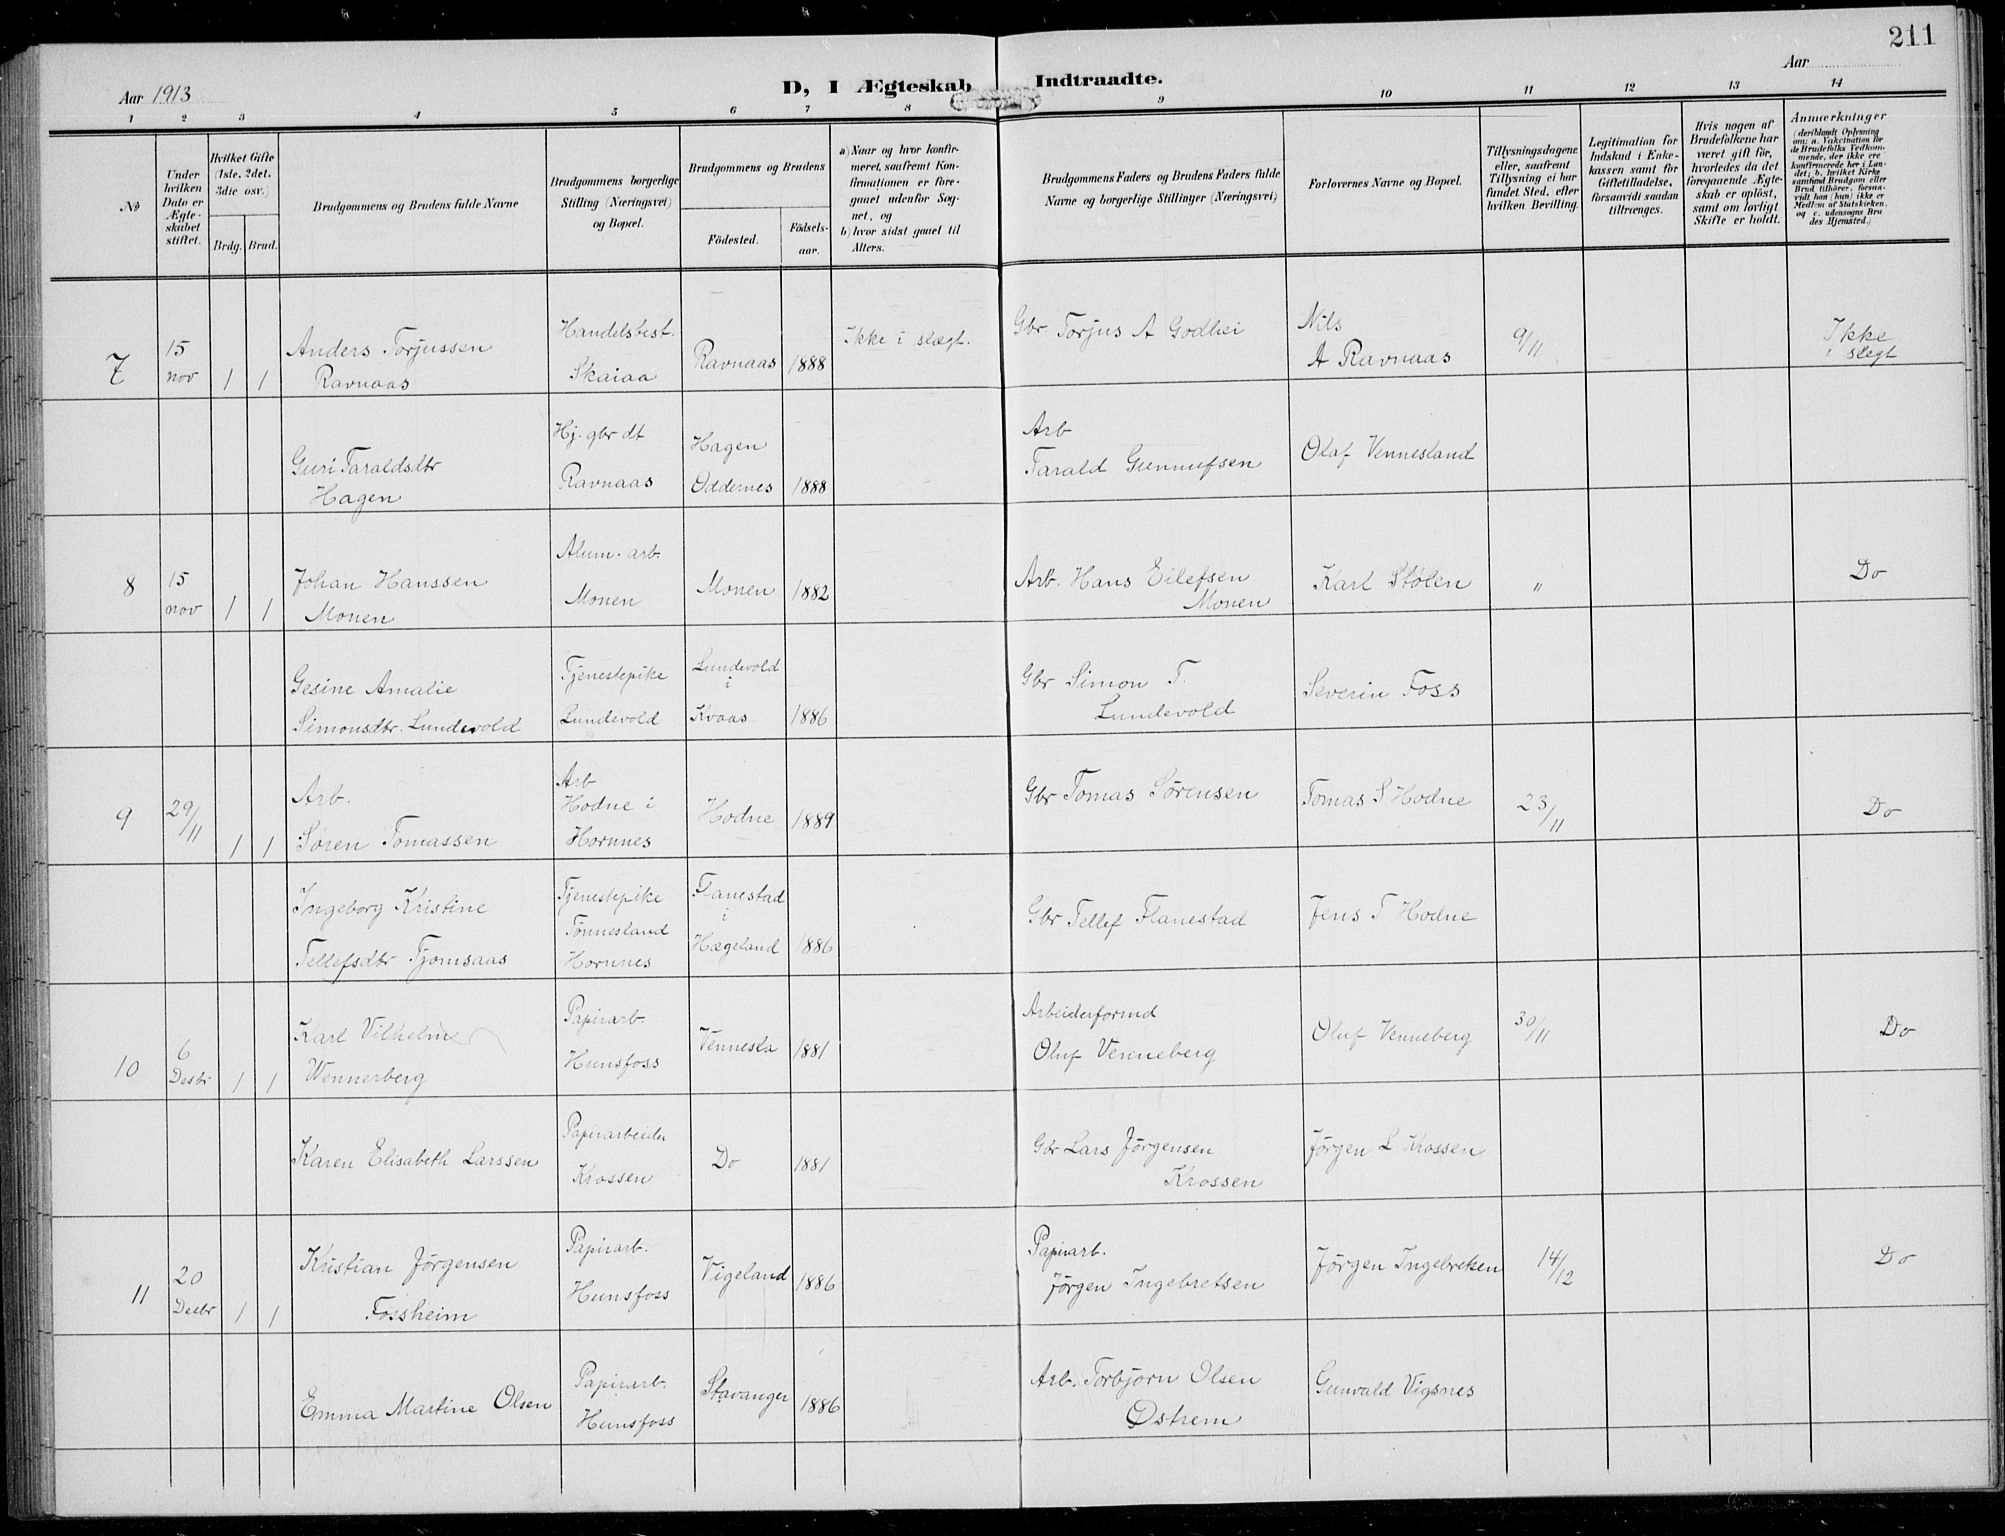 211
Aar 1913
D, I Ægteskab Indtraadte.
Aar
1 2 3 4 5 6 7 8 9 10 11 12 13 14
No
Under hvilken Dato er Ægteskabet stiftet.
Hvilket Gifte (1ste, 2det, 3die osv.)
Brdg. Brud.
Brudgommens og Brudens fulde Navne
Brudgommens borgerlige Stilling (Næringsvei) og Bopæl.
Brudgommens og Brudens
Födested.
Födselsaar.
a) Naar og hvor konfirmeret, saafremt Konfirmationen er foregaaet udenfor Sognet, og
b) hvor sidst gaaet til Alters.
Brudgommens Faders og Brudens Faders fulde Navne og borgerlige Stillinger (Næringsvei)
Forlovernes Navne og Bopæl.
Tillysningsdagene eller, saafremt Tillysning ei har fundet Sted, efter hvilken Bevilling.
Legitimation for Indskud i Enkekassen samt for Giftetilladelse, forsaavidt saadan tiltrænges.
Hvis nogen af Brudefolkene har været gift för, hvorledes da det foregaaende Ægteskab er oplöst, samt om lovligt Skifte er holdt.
Anmærkninger
(deriblandt Oplysning om: a. Vakcination for de Brudefolks Vedkommende, der ikke ere konfirmerede her i Landet; b. hvilket Kirkesamfund Brudgom eller Brud tilhörer, forsaavidt han (hun) ikke er Medlem af Statskirken, og c. udensogns Brudes Hjemsted.)
7
15 nov
1 1
Anders Torjussen
Ravnaas
Handelsbest.
Skaiaa
Ravnaas 1888
Ikke i slægt.
Gbr Torjus A Godhei
Nils
A Ravnaas
9/11
Ikke
i slegt
Guri Taraldsdtr
Hagen
Hj. gbr dt
Ravnaas
Hagen
Oddernes 1888
Arb
Tarald Gunnufsen
Olaf Vennesland
8
15 nov
1 1
Johan Hanssen
Monen
Alum. arb.
Monen
Monen 1882
Arb. Hans Eilefsen
Monen
Karl Stölen
"
Do
Gesine Amalie
Simonsdtr. Lundevold
Tjenestepike
Lundevold
Lundevold
i
Kvaas 1886
Gbr Simon T.
Lundevold
Severin Foss
9
29/11
1 1
Arb.
Sören Tomassen
Arb
Hodne i
Hornnes
Hodne 1889
Gbr Tomas Sörensen
Tomas S Hodne
23/11
Do
Ingeborg Kristine
Tellefsdtr Tjomsaas
Tjenestepike
Tönnesland
Hornnes
Flanestad
i
Hægeland 1886
Gbr Tellef Flanestad
Jens T Hodne
10
6 Desbr
1 1
Karl Vilhelm
Wennerberg
Papirarb.
Hunsfoss
Vennesla 1881
Arbeiderformd
Oluf Venneberg
Oluf Venneberg
30/11
Do
Karen Elisabeth Larssen
Papirarbeider
Krossen
Do 1881
Gbr Lars Jörgensen
Krossen
Jörgen L Krossen
11
20 Desbr
1 1
Kristian Jörgensen
Fossheim
Papirarb.
Hunsfoss
Vigeland 1886
Papirarb.
Jörgen Ingebretsen
Jörgen Ingebretsen
14/12
Do
Emma Martine Olsen
Papirarb.
Hunsfoss
Stavanger 1886
Arb. Torbjørn Olsen
Østrem
Gunvald Vigsnes